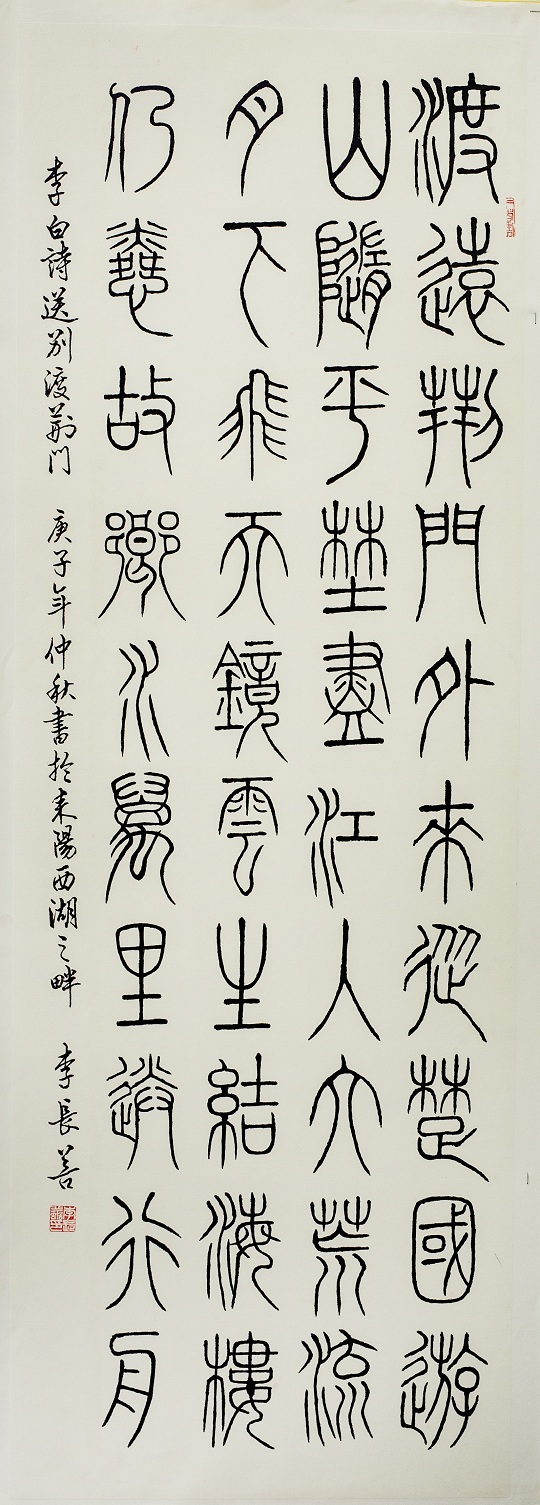 渡遠荊門外來從楚國遊
山隨平埜盡江入大荒流
月下飛天鏡雲生結海樓
仍憐故鄉水萬里送行舟
李白詩送别渡荊门 庚子年仲秋書於耒陽西湖之畔 李長善